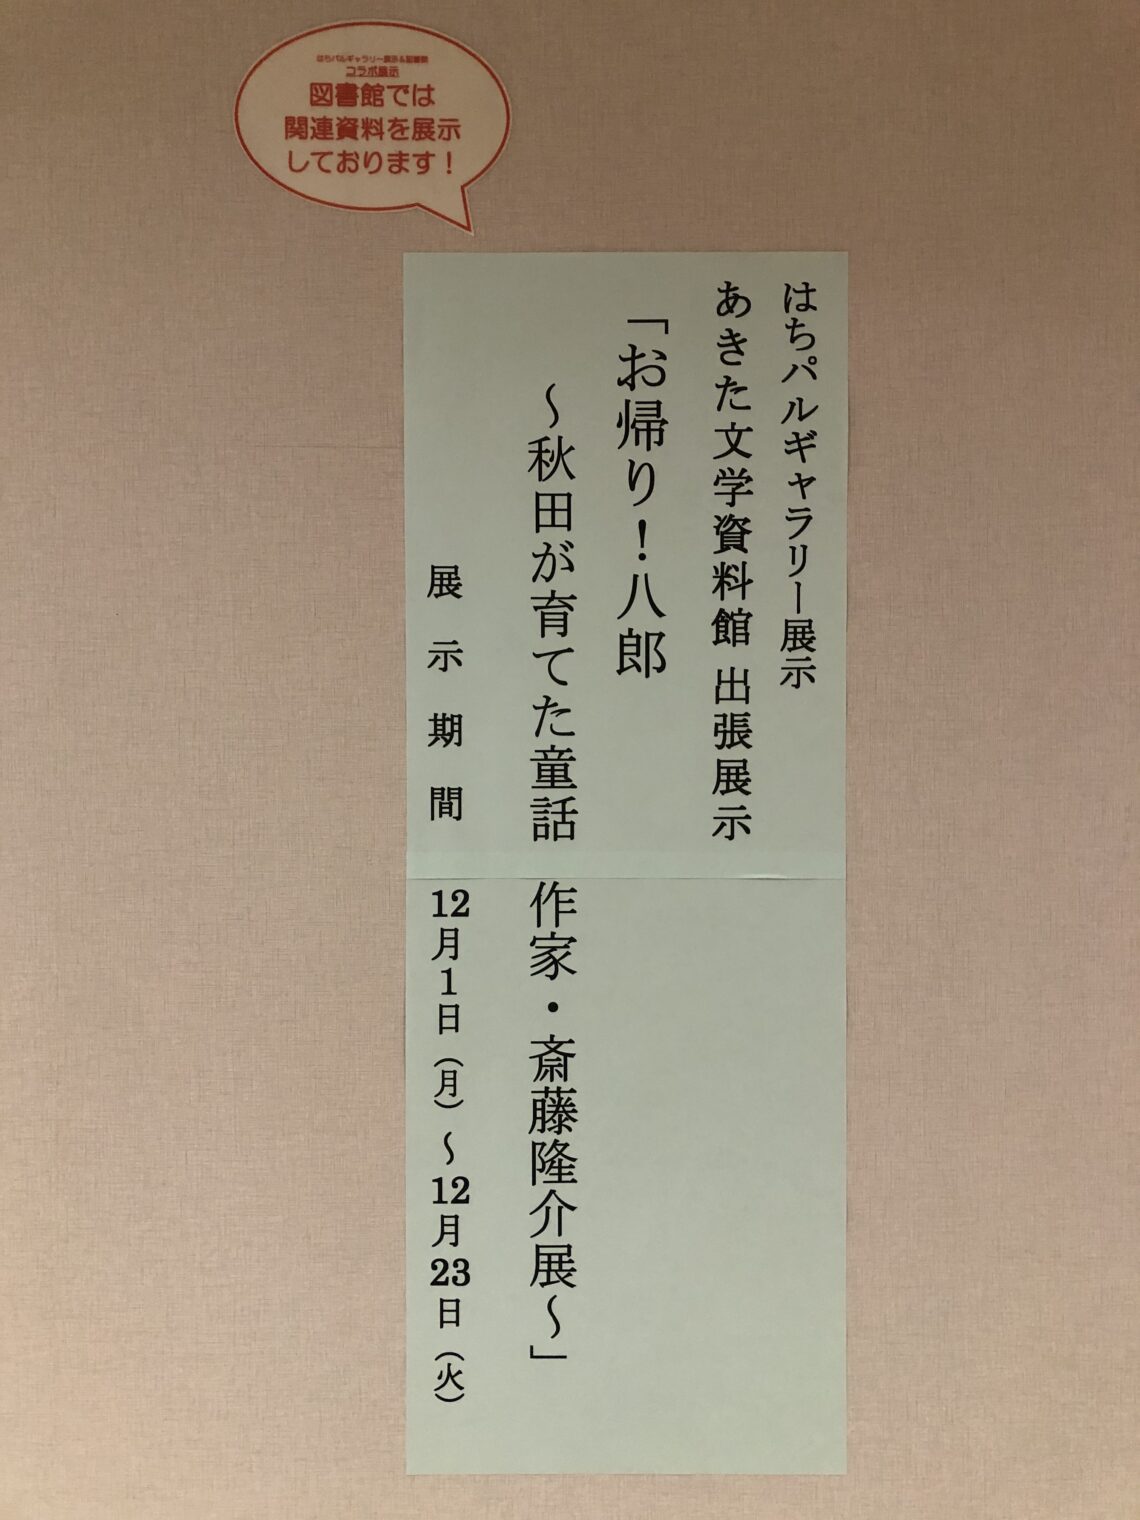 はちパルギャラリー展示&図書館
コラボ展示
図書館では
関連資料を展示
しております！
はちパルギャラリー展示
あきた文学資料館 出張展示
「お帰り！八郎
～秋田が育てた童話作家・斎藤隆介展～」
展示期間 12月1日（月）～12月23日（火）